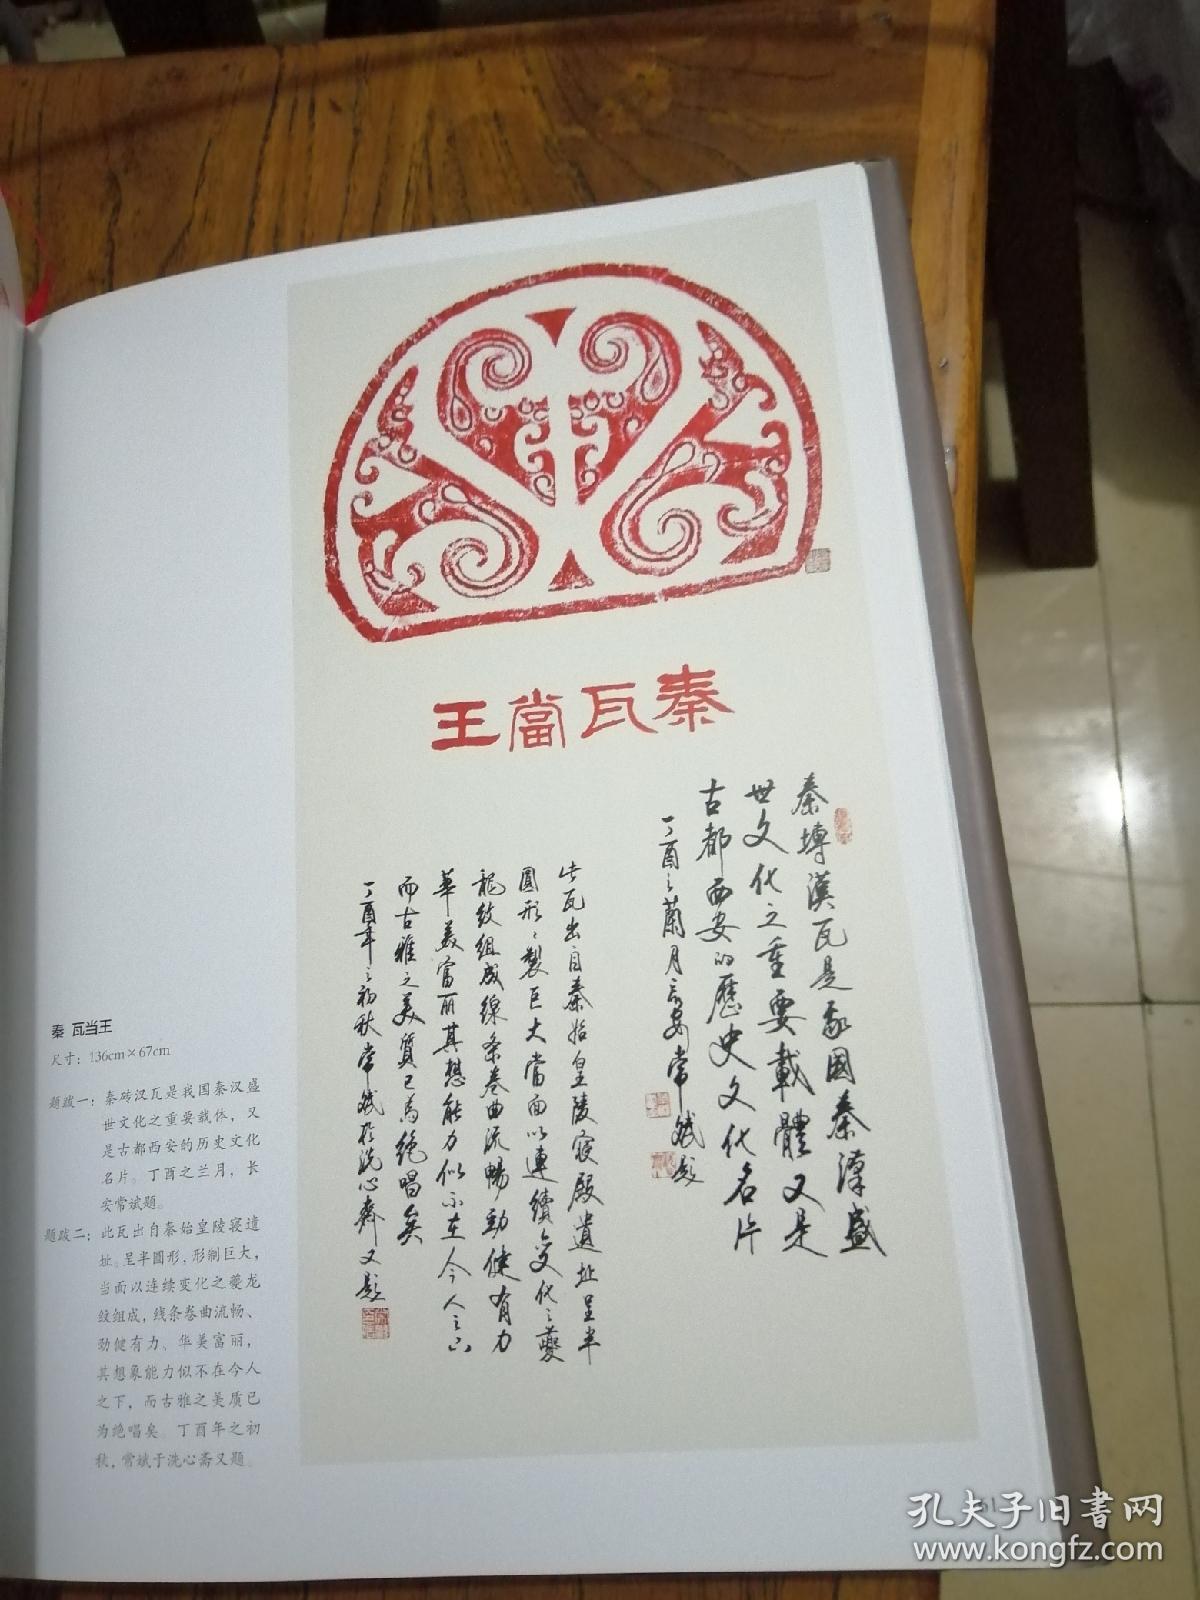 秦瓦當王
秦塼漢瓦是我國秦漢盛
世文化之重要載體又是
古都西安的歷史文化名片
丁酉之蘭月長安常斌題
此瓦出自秦始皇陵寢殿遺址呈半
圓形形製巨大當面以連續變化之夔
龍紋組成線條卷曲流暢勁健有力
華美富丽其想能力似不在今人之下
而古雅之美質已為絕唱矣
丁酉年之初秋常斌於洗心齋又題
秦 瓦当王
尺寸：136cm×67cm
题跋一：秦砖汉瓦是我国秦汉盛
世文化之重要载体，又
是古都西安的历史文化
名片。丁酉之兰月，长
安常斌题。
题跋二：此瓦出自秦始皇陵寝遗
址。呈半圆形，形制巨大，
当面以连续变化之夔龙
纹组成，线条卷曲流畅、
劲健有力、华美富丽，
其想象能力似不在今人
之下，而古雅之美质已
为绝唱矣。丁酉年之初
秋，常斌于洗心斋又题。
61
孔夫子旧书网
www.kongfz.com